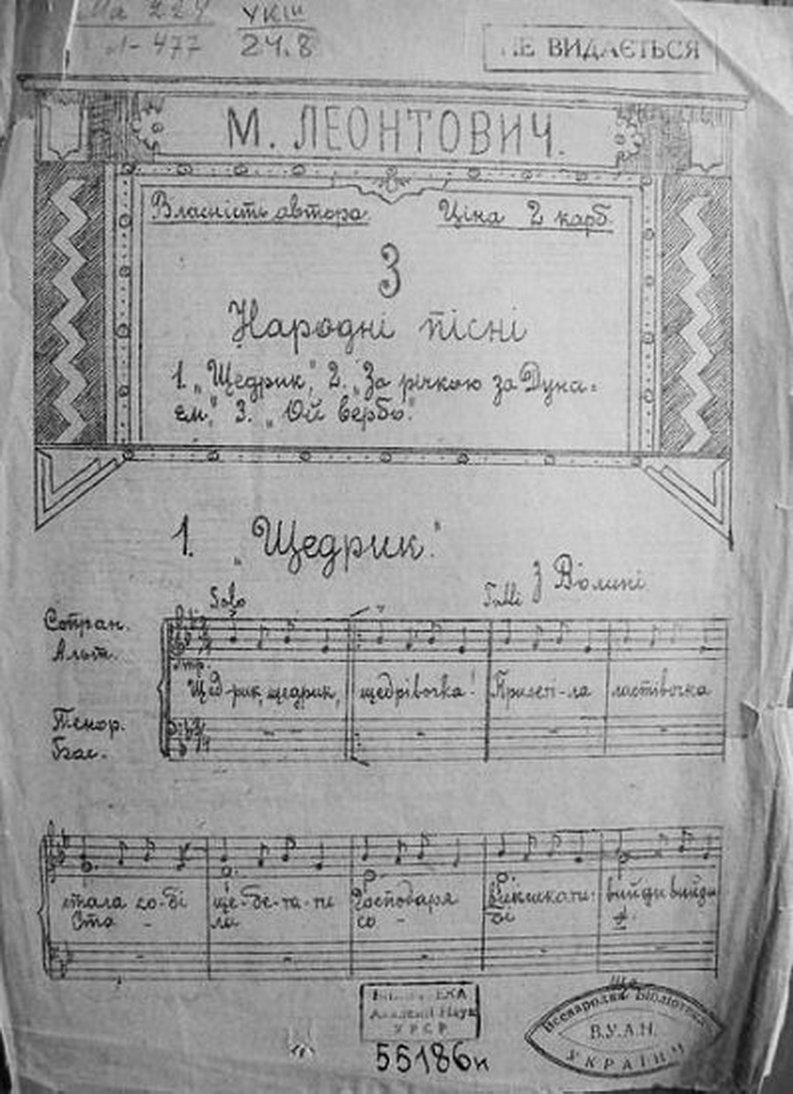 224 УКШ
477 24.8
НЕ ВИДАЄТЬСЯ
М. ЛЕОНТОВИЧ.
Власність автора. Ціна 2 карб.
3
Народні пісні
1. „Щедрик", 2. „За річкою за Дуна=
єм". 3. „Ой вербо".
1. „Щедрик."
Solo Tutti З Волині
Сопран.
Альт.
Щед-рик, щедрик, щедрівочка! Прилеті-ла ластівочка
Тенор.
Бас.
стала со-бі ще-бе-та-ти Господаря викликати: вийди вийди
Ста - ла со - бі
БІБЛІОТЕКА
Академії Наук
УРСР
55186н
Всенародня Бібліотека
В.У.А.Н.
УКРАЇНИ